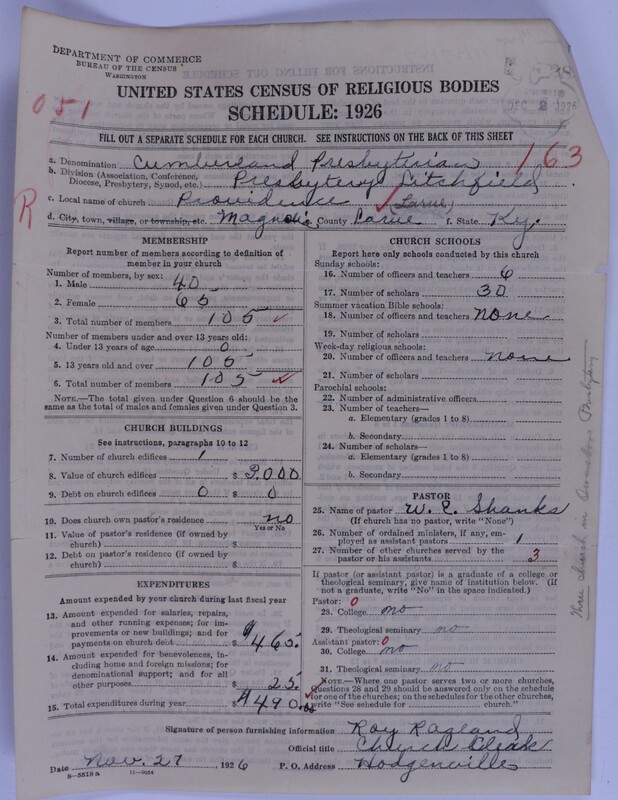 DEPARTMENT OF COMMERCE
BUREAU OF THE CENSUS
WASHINGTON
DEC 2 1926
UNITED STATES CENSUS OF RELIGIOUS BODIES
051
SCHEDULE: 1926
FILL OUT A SEPARATE SCHEDULE FOR EACH CHURCH. SEE INSTRUCTIONS ON THE BACK OF THIS SHEET
a. Denomination Cumberland Presbytirian 163
b. Division (Association, Conference, Diocese, Presbytery, Synod, etc.) Presbytery Litchfield
c. Local name of church Providence Larue
R
d. City, town, village, or township, etc. Magnolia e. County Larue f. State Ky.
MEMBERSHIP
Report number of members according to definition of member in your church
Number of members, by sex:
1. Male 40
2. Female 65
3. Total number of members 105 ✓
Number of members under and over 13 years old:
4. Under 13 years of age 0
5. 13 years old and over 105
6. Total number of members 105 ✓
NOTE.—The total given under Question 6 should be the same as the total of males and females given under Question 3.
CHURCH BUILDINGS
See instructions, paragraphs 10 to 12
7. Number of church edifices 1
8. Value of church edifices $ 2,000
9. Debt on church edifices 0 $ 0
10. Does church own pastor's residence no
Yes or No
11. Value of pastor's residence (if owned by church) $
12. Debt on pastor's residence (if owned by church) $
EXPENDITURES
Amount expended by your church during last fiscal year
13. Amount expended for salaries, repairs, and other running expenses; for improvements or new buildings; and for payments on church debt $ 465.
14. Amount expended for benevolences, including home and foreign missions; for denominational support; and for all other purposes $ 25.
15. Total expenditures during year $ 490.00 ✓
CHURCH SCHOOLS
Report here only schools conducted by this church
Sunday schools:
16. Number of officers and teachers 6
17. Number of scholars 30
Summer vacation Bible schools:
18. Number of officers and teachers none
19. Number of scholars
Week-day religious schools:
20. Number of officers and teachers none
21. Number of scholars
Parochial schools:
22. Number of administrative officers
23. Number of teachers—
a. Elementary (grades 1 to 8)
b. Secondary
24. Number of scholars—
a. Elementary (grades 1 to 8)
b. Secondary
PASTOR
25. Name of pastor W. C. Shanks
(If church has no pastor, write "None")
26. Number of ordained ministers, if any, employed as assistant pastors 1
27. Number of other churches served by the pastor or his assistants 3
If pastor (or assistant pastor) is a graduate of a college or theological seminary, give name of institution below. (If not a graduate, write "No" in the space indicated.)
Pastor: 0
28. College no
29. Theological seminary no
Assistant pastor: 0
30. College no
31. Theological seminary no
NOTE.—Where one pastor serves two or more churches, Questions 28 and 29 should be answered only on the schedule for one of the churches; on the schedules for the other churches, write "See schedule for church."
Three church in Owensboro Presbytery
Signature of person furnishing information Roy Ragland
Official title Church Cleak
Date Nov. 27, 1926 P. O. Address Hodgenville
8—5518 a 11—9054